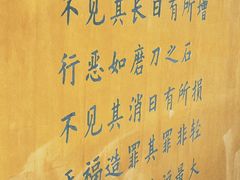 不见其长日有所增
行恶如磨刀之石
不见其消日有所损
福造罪其罪非轻
大